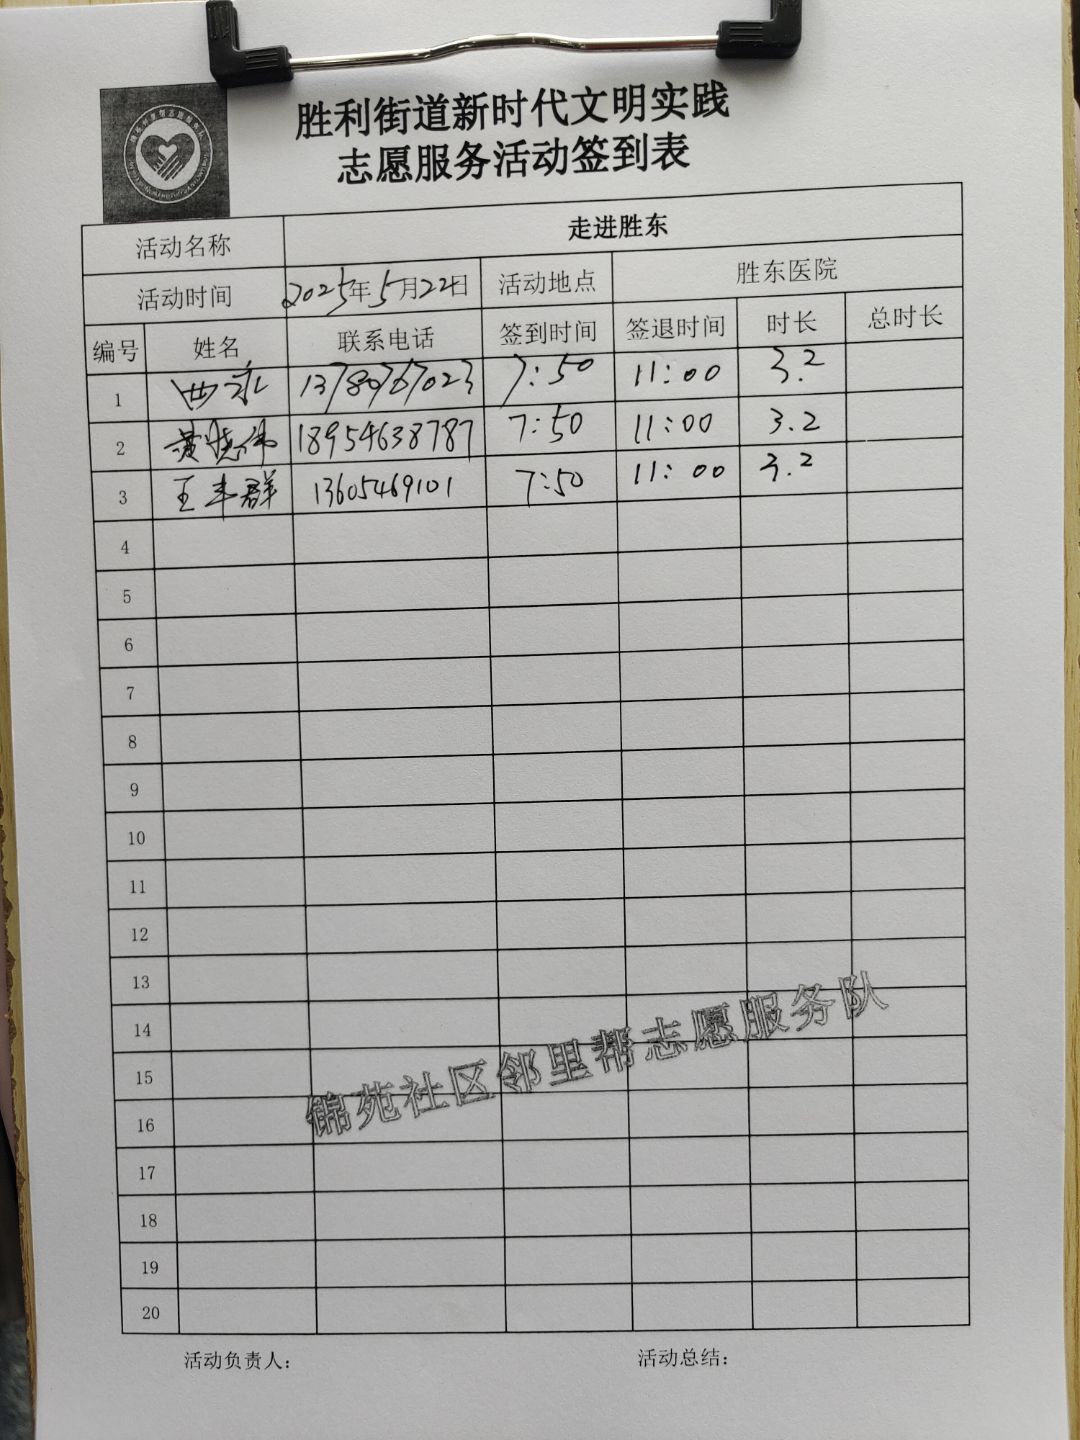 胜利街道新时代文明实践
志愿服务活动签到表
活动名称 走进胜东
活动时间 2025年5月22日 活动地点 胜东医院
编号 姓名 联系电话 签到时间 签退时间 时长 总时长
1 13780767023 7:50 11:00 3.2
2 黄晓伟 18954638787 7:50 11:00 3.2
3 王丰群 13605469101 7:50 11:00 3.2
4
5
6
7
8
9
10
11
12
13
14
15
16
17
18
19
20
锦苑社区邻里帮志愿服务队
活动负责人： 活动总结：